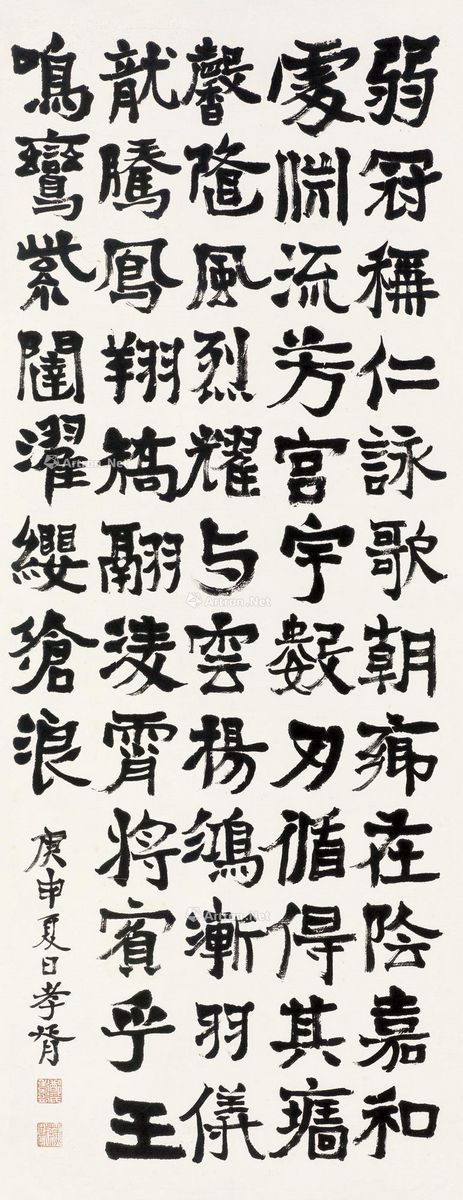 弱冠稱仁詠歌朝鄉在陰嘉和
處淵流芳宮宇數刃循得其牆
馨隆風烈耀与雲楊鴻漸羽儀
龍騰鳳翔矯翮淩霄將賓乎王
鳴鸞紫闥濯纓滄浪
庚申夏日孝胥
Artron.Net
Artron.Net
Artron.Net
Artron.Net